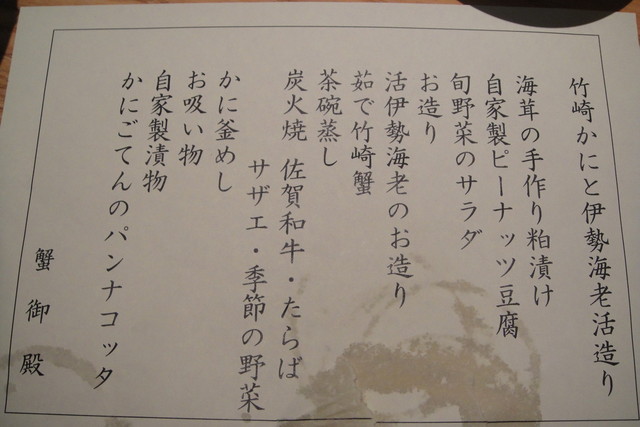 竹崎かにと伊勢海老活造り
海茸の手作り粕漬け
自家製ピーナッツ豆腐
旬野菜のサラダ
お造り
活伊勢海老のお造り
茹で竹崎蟹
茶碗蒸し
炭火焼 佐賀和牛・たらば
サザエ・季節の野菜
かに釜めし
お吸い物
自家製漬物
かにごてんのパンナコッタ
蟹御殿